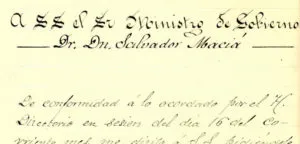 A S S el Sr Ministro de Gobierno
Dr. Dn. Salvador Maciá
De conformidad á lo acordado por el H.
Directorio en sesion del dia 16 del co-
rriente mes me dirijo á S.S. pidiéndole